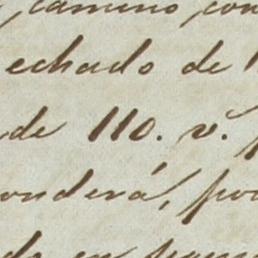 camino, con
echado de
de 110. v.
onderá, po